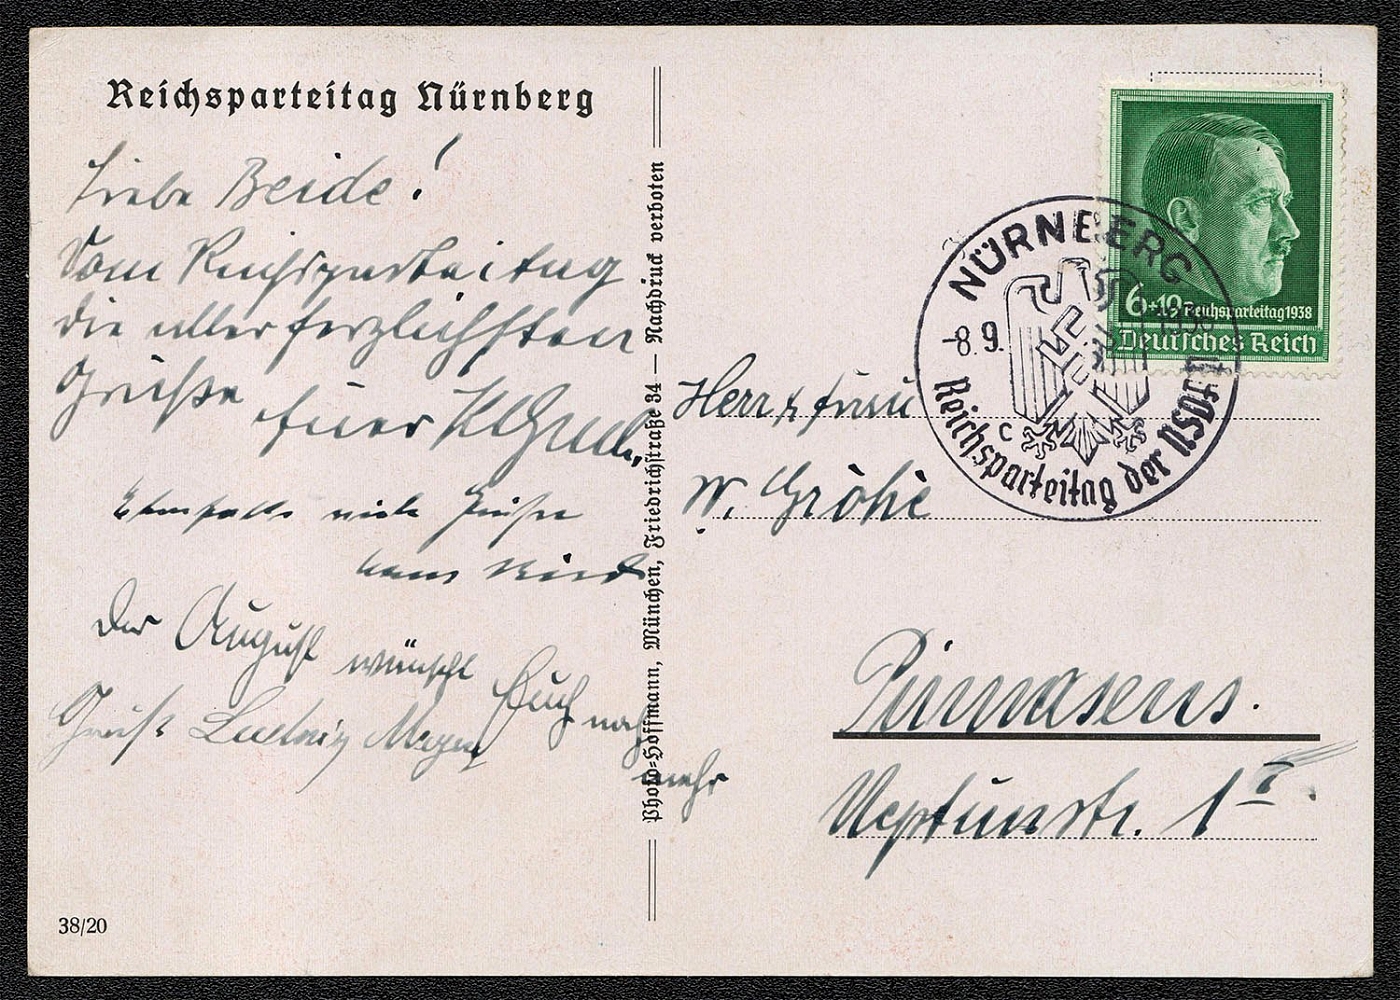 Reichsparteitag Nürnberg
Liebe Beide!
Vom Reichsparteitag
die allerherzlichsten
Grüße Euer
Ebenfalls viele Grüße
Hans
Der August wünscht Euch noch
mehr
Gruß Ludwig
38/20
Photo-Hoffmann, München, Friedrichstraße 34 — Nachdruck verboten
6+19 Reichsparteitag 1938
Deutsches Reich
NÜRNBERG
-8.9.
C
Reichsparteitag der NSDAP
Herr & Frau
W. Gröhe
Pirmasens.
Neptunstr. 1 I.